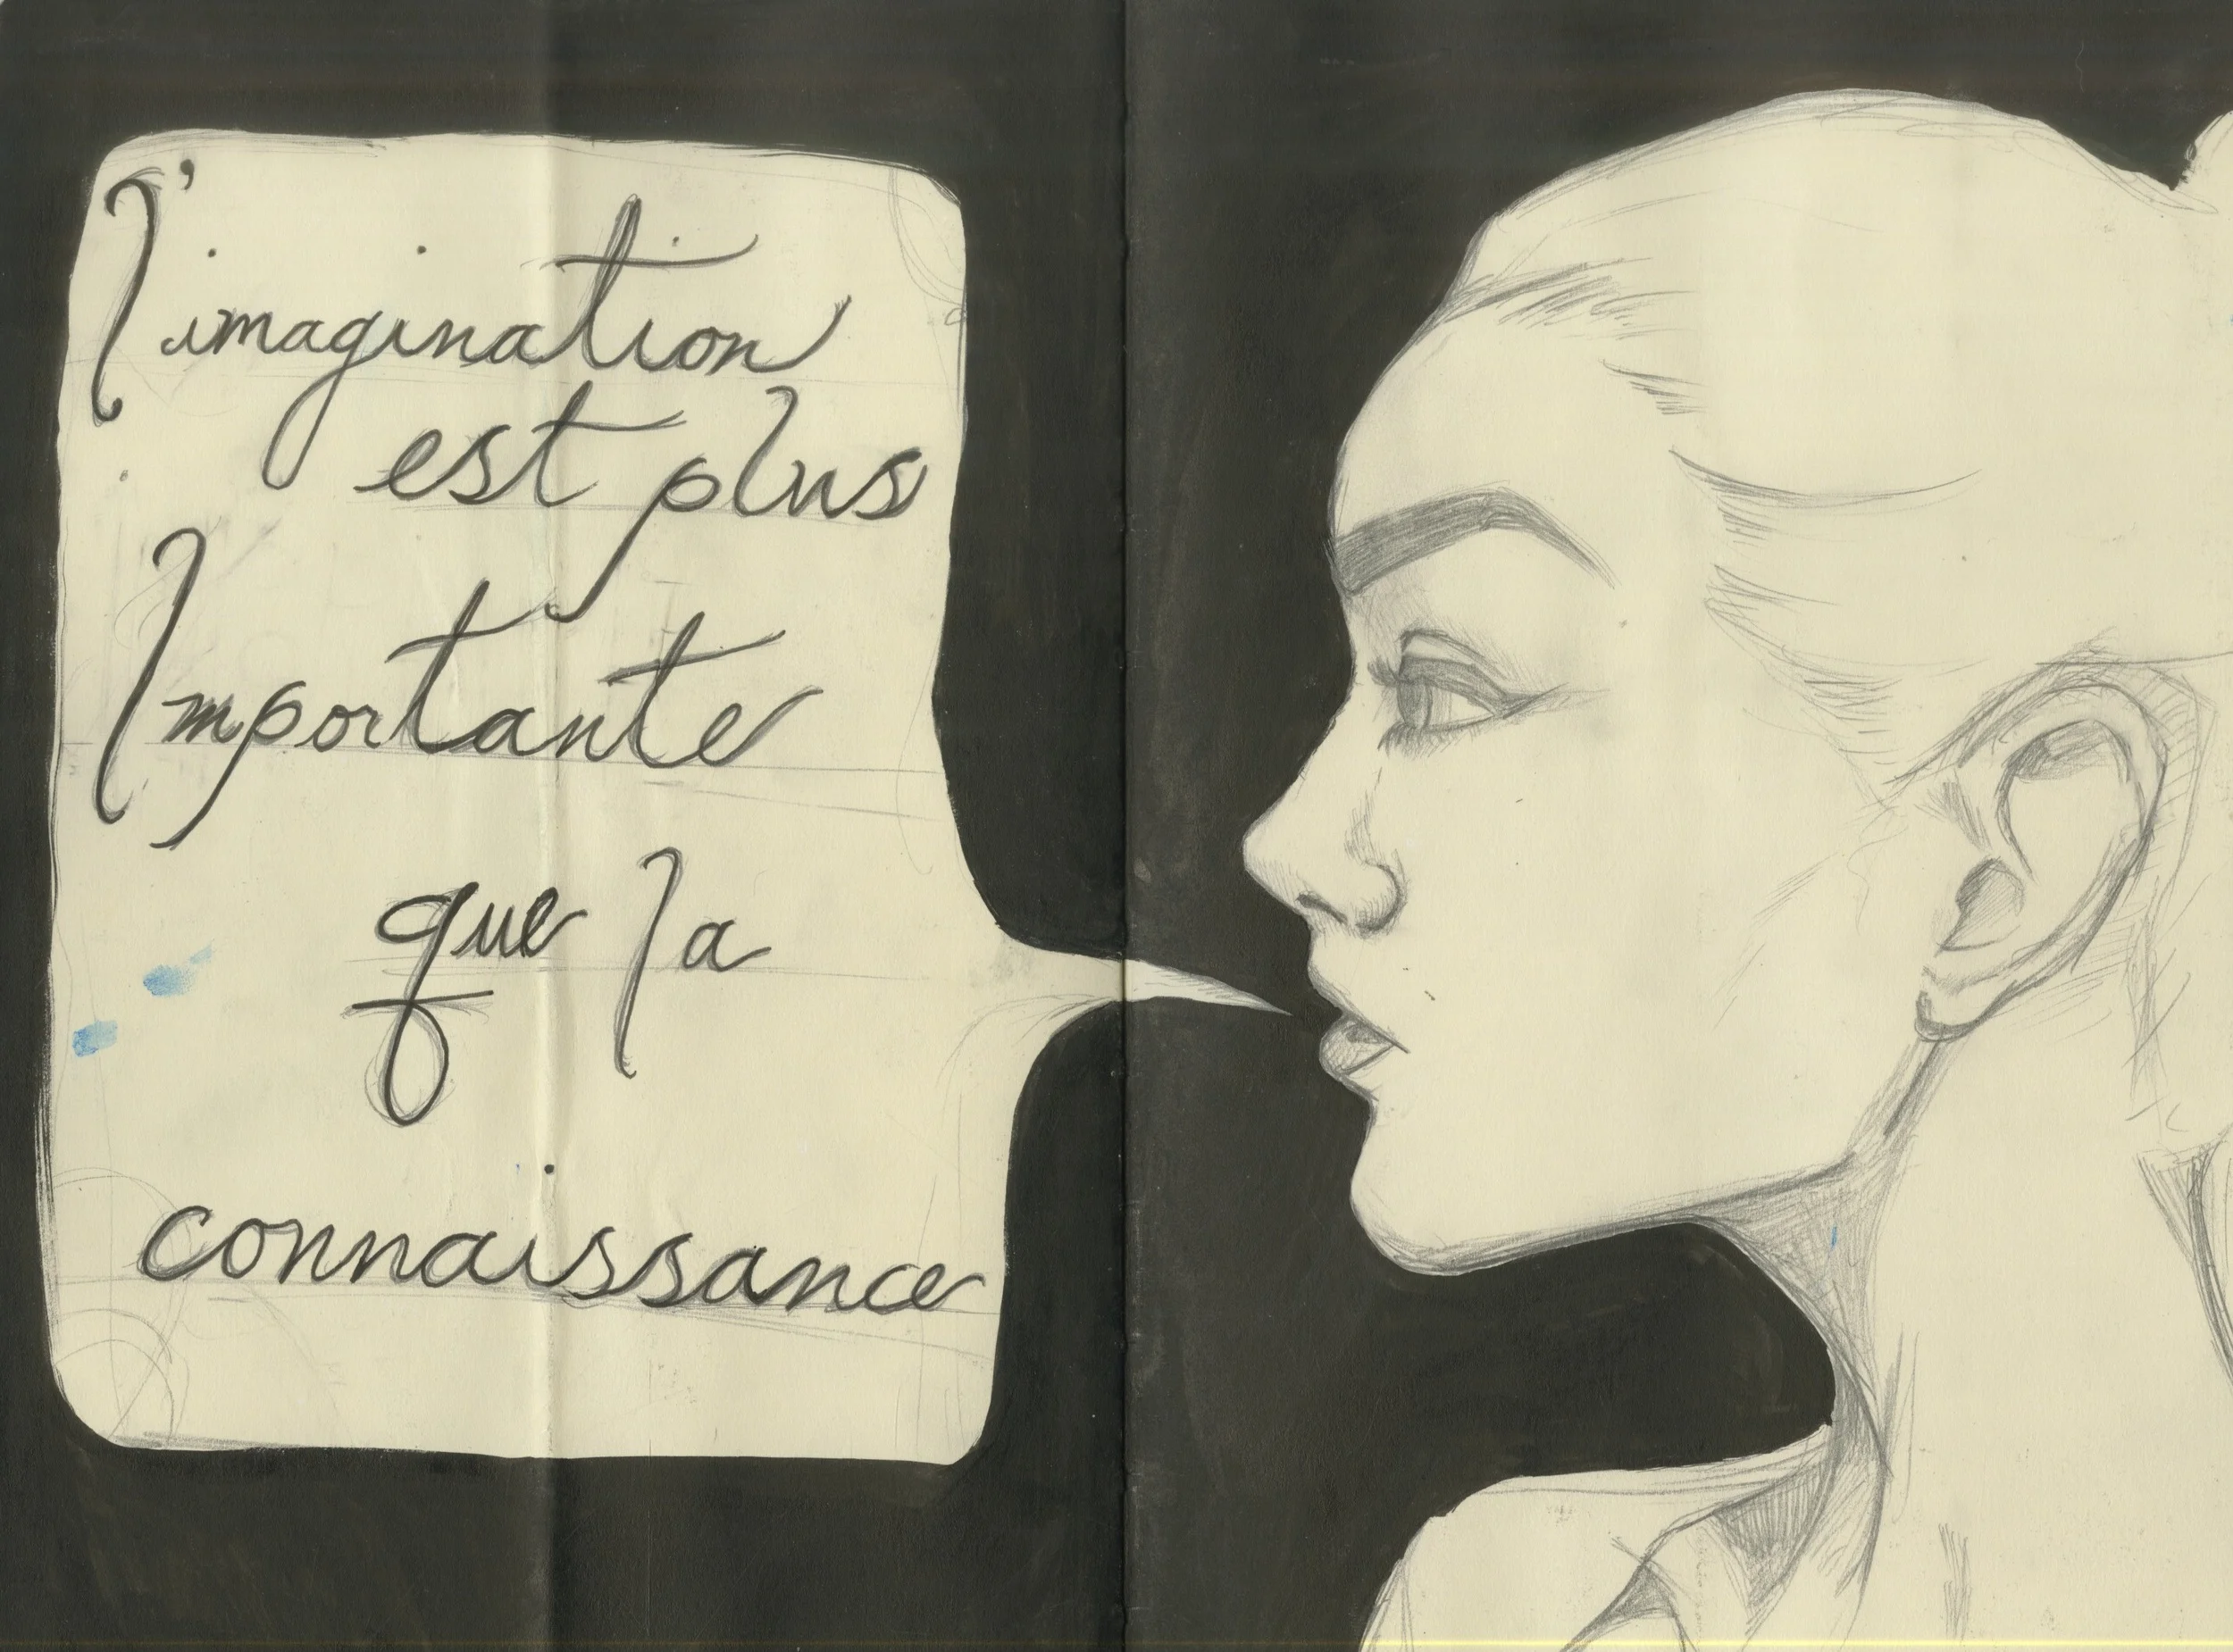 l'imagination
est plus
Importante
que la
connaissance